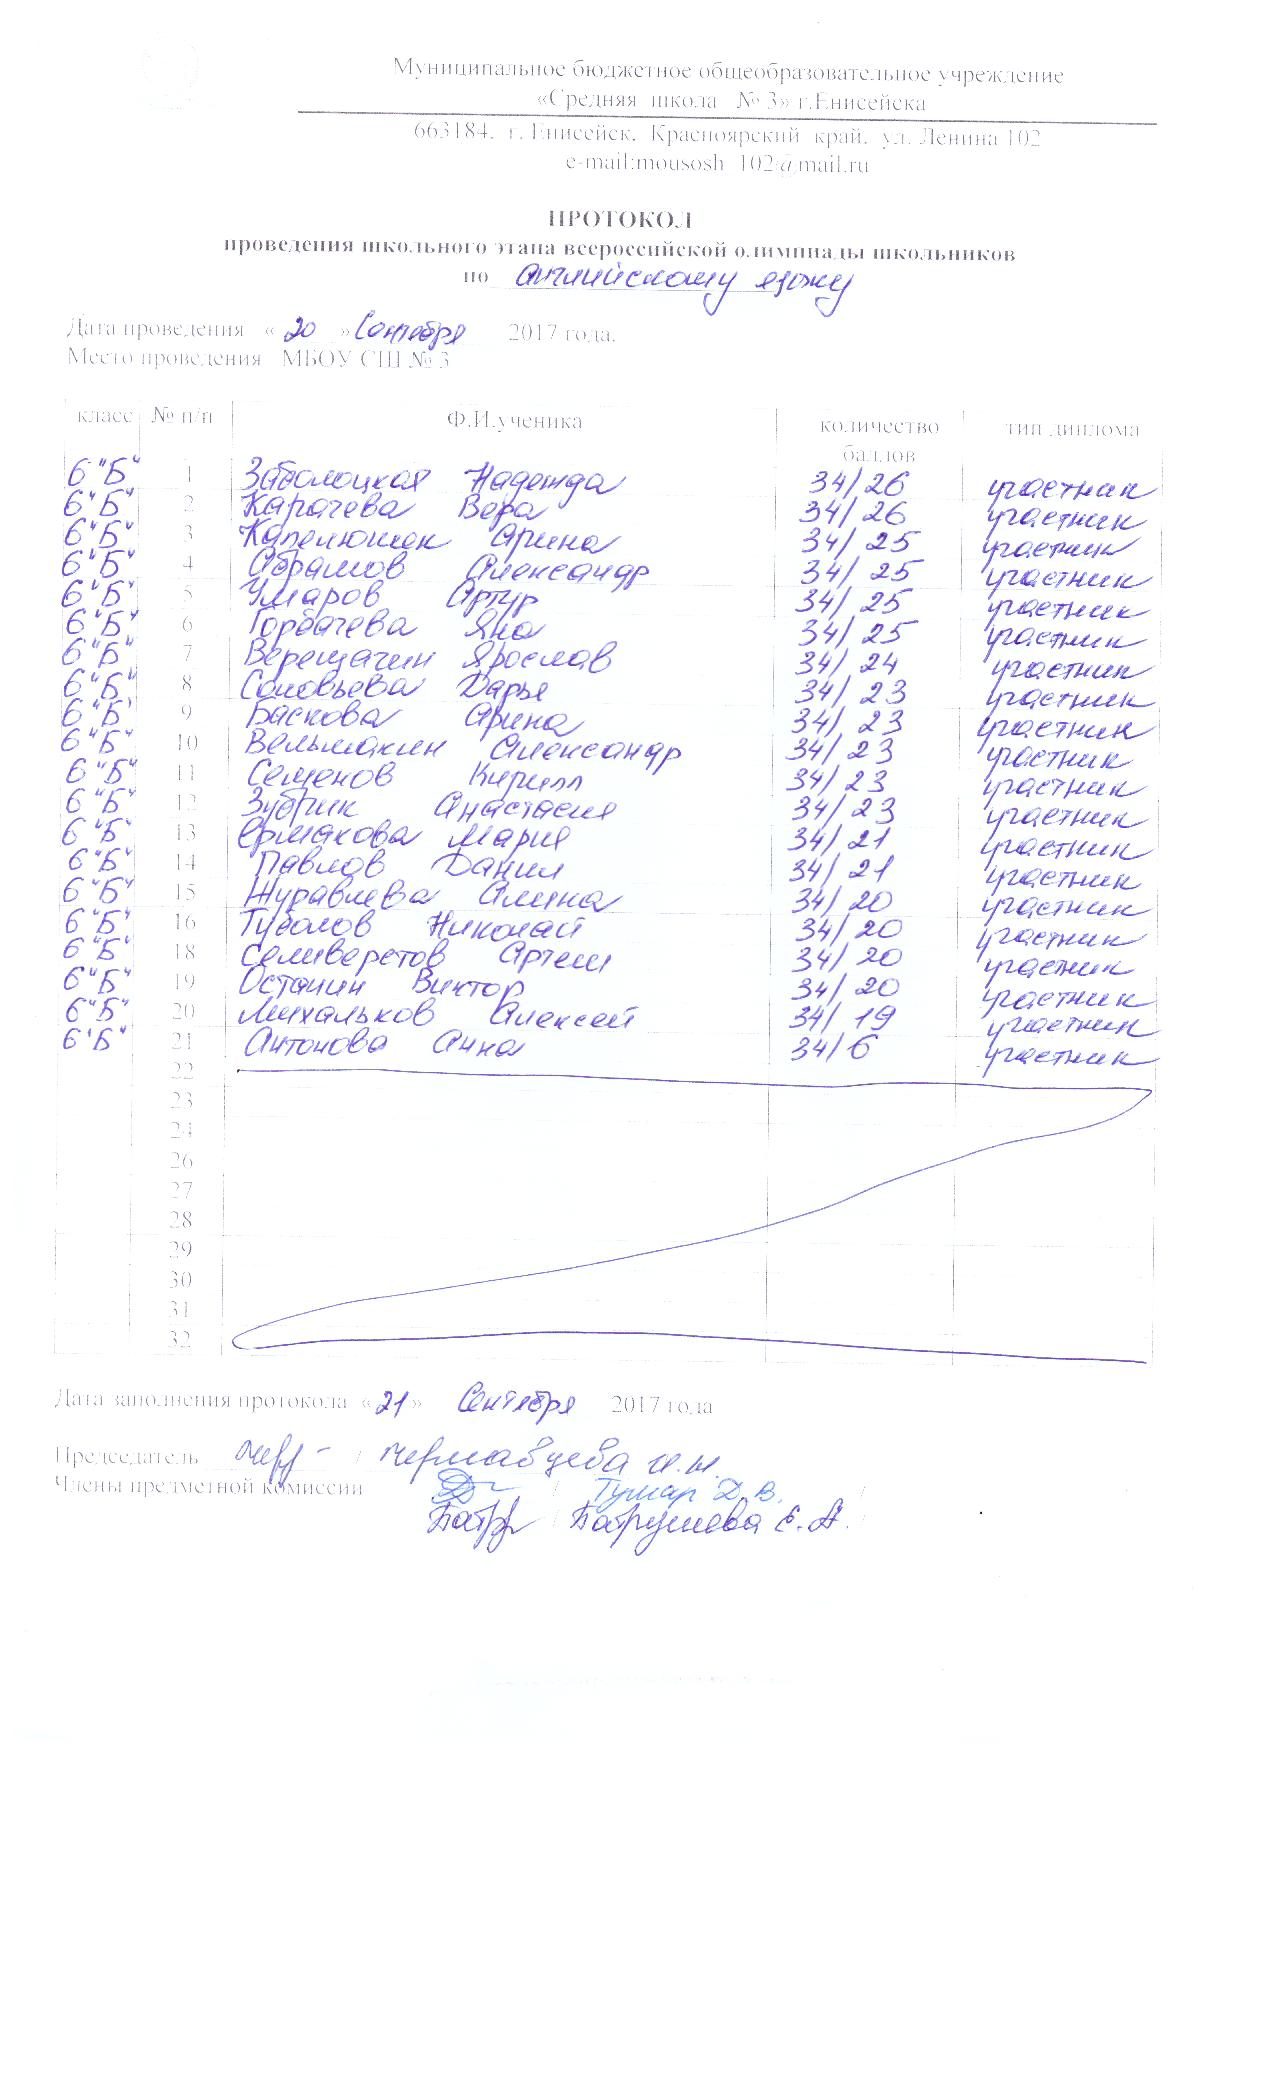 Муниципальное бюджетное общеобразовательное учреждение
«Средняя школа № 3» г.Енисейска
663184, г. Енисейск, Красноярский край, ул. Ленина 102
e-mail:mousosh 102@mail.ru
ПРОТОКОЛ
проведения школьного этапа всероссийской олимпиады школьников
по английскому языку
Дата проведения « 20 » Сентября 2017 года.
Место проведения МБОУ СШ № 3
класс № п/п Ф.И.ученика количество баллов тип диплома
6 "Б" 1 Заболоцкая Надежда 34/26 участник
6 "Б" 2 Карачева Вера 34/26 участник
6 "Б" 3 Капелюшек Арина 34/25 участник
6 "Б" 4 Абрамов Александр 34/25 участник
6 "Б" 5 Умаров Артур 34/25 участник
6 "Б" 6 Горбачева Яна 34/25 участник
6 "Б" 7 Верещагин Ярослав 34/24 участник
6 "Б" 8 Соловьева Дарья 34/23 участник
6 "Б" 9 Баскова Арина 34/23 участник
6 "Б" 10 Вельмакин Александр 34/23 участник
6 "Б" 11 Семенов Кирилл 34/23 участник
6 "Б" 12 Зубрик Анастасия 34/23 участник
6 "Б" 13 Ермакова Мария 34/21 участник
6 "Б" 14 Павлов Данил 34/21 участник
6 "Б" 15 Журавлева Алина 34/20 участник
6 "Б" 16 Туболов Николай 34/20 участник
6 "Б" 18 Селиверстов Артем 34/20 участник
6 "Б" 19 Останин Виктор 34/20 участник
6 "Б" 20 Михальков Алексей 34/19 участник
6 "Б" 21 Антонова Анна 34/6 участник
22
23
24
26
27
28
29
30
31
32
Дата заполнения протокола «21» Сентября 2017 года
Председатель / И.Н.
Члены предметной комиссии / Тумар Д.В. /
/ Патрушева Е.А. /